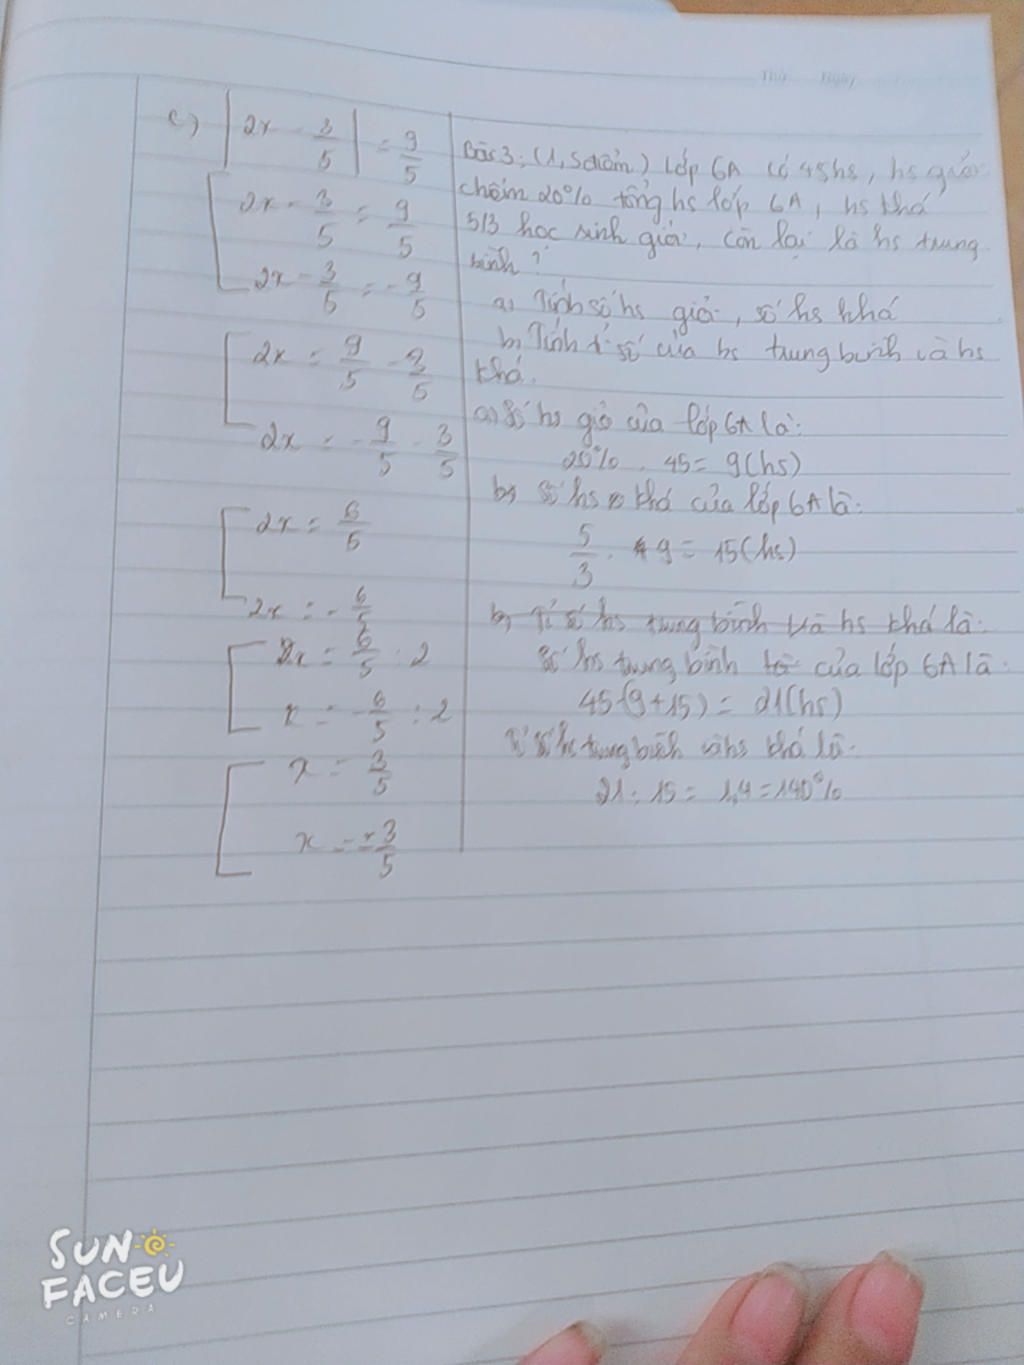 Thứ Ngày
c) |2x - 3/5| = 9/5
[ 2x - 3/5 = 9/5
2x - 3/5 = -9/5
[ 2x = 9/5 - 3/5
2x = -9/5 - 3/5
[ 2x = 6/5
2x = -6/5
[ x = 6/5 : 2
x = -6/5 : 2
[ x = 3/5
x = -3/5
Bài 3: (1,5 điểm) Lớp 6A có 45hs, hs giỏi
chiếm 20% tổng hs lớp 6A, hs khá
5/3 học sinh giỏi, còn lại là hs trung
bình?
a) Tính số hs giỏi, số hs khá
b) Tính tỉ số của hs trung bình và hs
khá.
a) Số hs giỏi của lớp 6A là:
20% . 45 = 9(hs)
b) Số hs khá của lớp 6A là:
5/3 . 9 = 15(hs)
b) Tỉ số hs trung bình và hs khá là:
Số hs trung bình của lớp 6A là:
45-(9+15) = 21(hs)
Tỉ số hs trung bình và hs khá là:
21 : 15 = 1,4 = 140%
SUN
FACEU
CAMERA